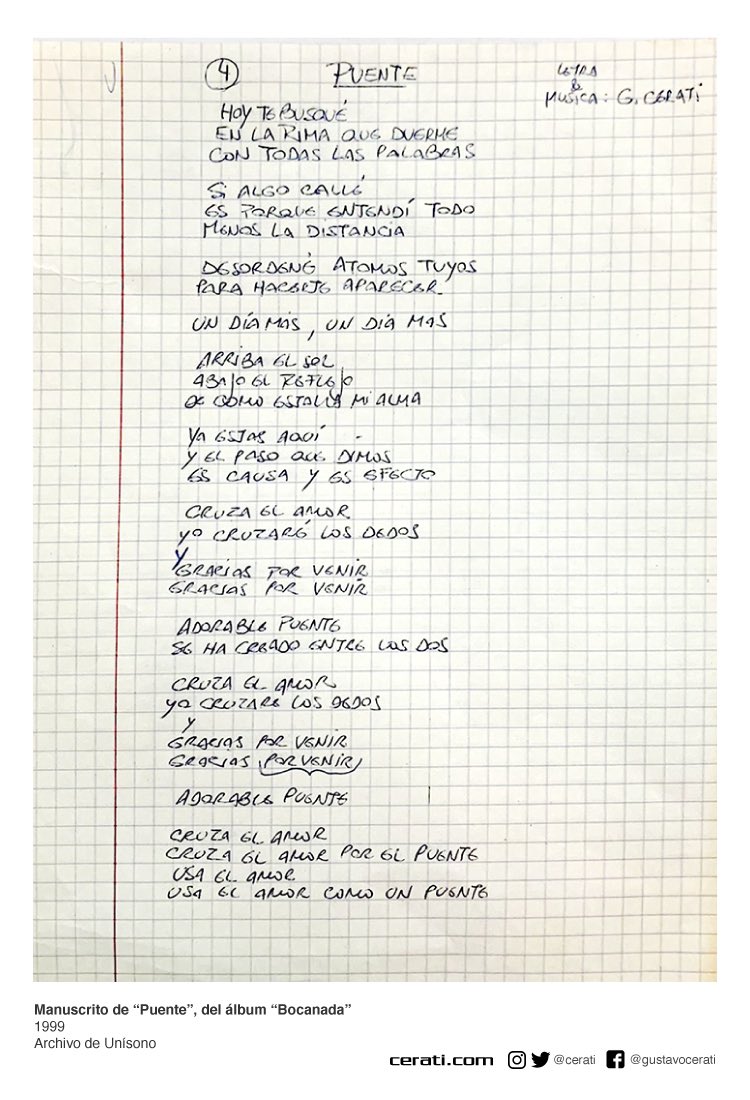 4 PUENTE
LETRA
&
MUSICA: G. CERATI
HOY TE BUSQUÉ
EN LA RIMA QUE DUERME
CON TODAS LAS PALABRAS
SI ALGO CALLÉ
ES PORQUE ENTENDÍ TODO
MENOS LA DISTANCIA
DESORDENÉ ATOMOS TUYOS
PARA HACERTE APARECER
UN DÍA MÁS, UN DÍA MAS
ARRIBA EL SOL
ABAJO EL REFLEJO
DE COMO ESTALLA MI ALMA
YA ESTAS AQUÍ
Y EL PASO QUE DIMOS
ES CAUSA Y ES EFECTO
CRUZA EL AMOR
YO CRUZARÉ LOS DEDOS
Y
GRACIAS POR VENIR
GRACIAS POR VENIR
ADORABLE PUENTE
SE HA CREADO ENTRE LOS DOS
CRUZA EL AMOR
YO CRUZARE LOS DEDOS
Y
GRACIAS POR VENIR
GRACIAS POR VENIR
ADORABLE PUENTE
CRUZA EL AMOR
CRUZA EL AMOR POR EL PUENTE
USA EL AMOR
USA EL AMOR COMO UN PUENTE
Manuscrito de “Puente”, del álbum “Bocanada”
1999
Archivo de Unísono
cerati.com @cerati @gustavocerati